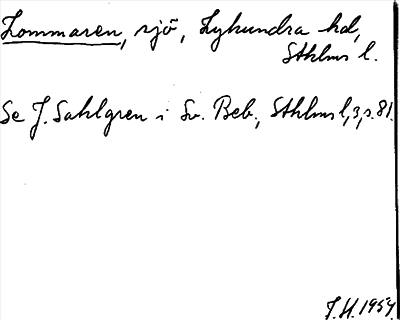 Lommaren, sjö, Lyhundra hd,
Sthlms l.
Se J. Sahlgren i Sv. Beb., Sthlms l, 3, s. 81.
J.H. 1954.